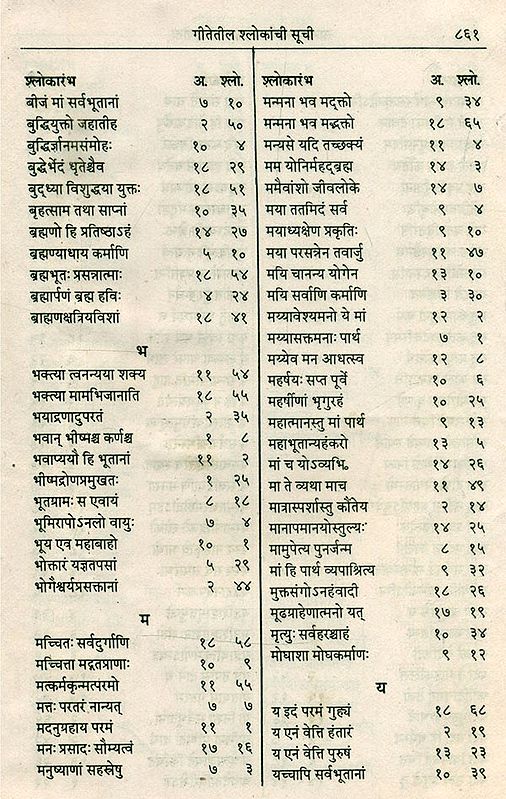 गीतेतील श्लोकांची सूची ८६१
श्लोकारंभ अ. श्लो.
बीजं मां सर्वभूतानां ७ १०
बुद्धियुक्तो जहातीह २ ५०
बुद्धिर्ज्ञानमसंमोहः १० ४
बुद्धेर्भेदं धृतेश्चैव १८ २९
बुद्ध्या विशुद्धया युक्तः १८ ५१
बृहत्साम तथा साप्नां १० ३५
ब्रह्मणो हि प्रतिष्ठाऽहं १४ २७
ब्रह्मण्याधाय कर्माणि ५ १०
ब्रह्मभूतः प्रसन्नात्माः १८ ५४
ब्रह्मार्पणं ब्रह्म हविः ४ २४
ब्राह्मणक्षत्रियविशां १८ ४१
भ
भक्त्या त्वनन्यया शक्य ११ ५४
भक्त्या मामभिजानाति १८ ५५
भयाद्रणादुपरतं २ ३५
भवान् भीष्मश्च कर्णश्च १ ८
भवाप्ययौ हि भूतानां ११ २
भीष्मद्रोणप्रमुखतः १ २५
भूतग्रामः स एवायं ८ १८
भूमिरापोऽनलो वायुः ७ ४
भूय एव महाबाहो १० १
भोक्तारं यज्ञतपसां ५ २९
भोगैश्वर्यप्रसक्तानां २ ४४
म
मच्चितः सर्वदुर्गाणि १८ ५८
मच्चित्ता मद्गतप्राणाः १० ९
मत्कर्मकृन्मत्परमो ११ ५५
मत्तः परतरं नान्यत् ७ ७
मदनुग्रहाय परमं ११ १
मनः प्रसादः सौम्यत्वं १७ १६
मनुष्याणां सहस्त्रेषु ७ ३
श्लोकारंभ अ. श्लो.
मन्मना भव मद्क्तो ९ ३४
मन्मना भव मद्भक्तो १८ ६५
मन्यसे यदि तच्छक्यं ११ ४
मम योनिर्महद्ब्रह्म १४ ३
ममैवांशो जीवलोके १४ ७
मया ततमिदं सर्व ९ ४
मयाध्यक्षेण प्रकृतिः ९ १०
मया परसन्नेन तवार्जु ११ ४७
मयि चानन्य योगेन १३ १०
मयि सर्वाणि कर्माणि ३ ३०
मय्यावेश्यमनो ये मां १२ २
मय्यासक्तमनाः पार्थ ७ १
मय्येव मन आधत्स्व १२ ८
महर्षयः सप्त पूर्वे १० ६
महर्षीणां भृगुरहं १० २५
महात्मानस्तु मां पार्थ ९ १३
महाभूतान्यहंकरो १३ ५
मां च योऽव्यभि १४ २६
मा ते व्यथा माच ११ ४९
मात्रास्पर्शास्तु कौंतेय २ १४
मानापमानयोस्तुल्यः १४ २५
मामुपेत्य पुनर्जन्म ८ १५
मां हि पार्थ व्यपाश्रित्य ९ ३२
मुक्तसंगोऽनहंवादी १८ २६
मूढग्राहेणात्मनो यत् १७ १९
मृत्युः सर्वहरश्चाहं १० ३४
मोघाशा मोघकर्माणः ९ १२
य
य इदं परमं गुह्यं १८ ६८
य एनं वेत्ति हंतारं २ १९
य एनं वेत्ति पुरुषं १३ २३
यच्चापि सर्वभूतानां १० ३९